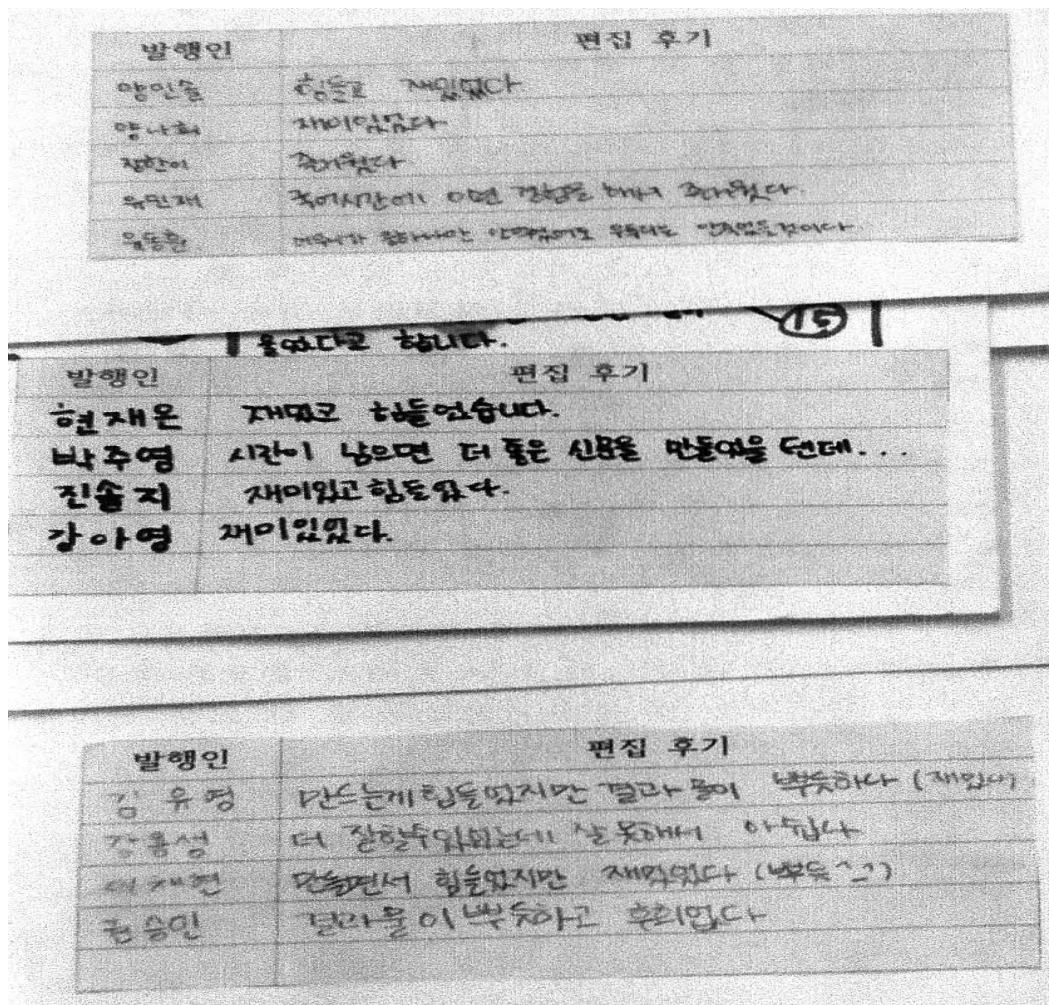 발행인 편집 후기
양인솔 힘들고 재밌었다
양나희 재미있었다
장한이 즐거웠다
유민재 국어시간에 이런 경험을 해서 즐거웠다.
동환
울었다고 합니다. 15
발행인 편집 후기
현재은 재밌고 힘들었습니다.
박주영 시간이 남으면 더 좋은 신문을 만들었을 텐데...
진솔지 재미있고 힘들었다.
강아영 재미있었다.
발행인 편집 후기
김유영 만드는게 힘들었지만 결과물이 뿌듯하다 (재밌어)
강용성 더 잘할수있었는데 잘 못해서 아쉽다
이재현 만들면서 힘들었지만 재밌었다 (뿌듯^^)
승민 결과물이 뿌듯하고 후회없다